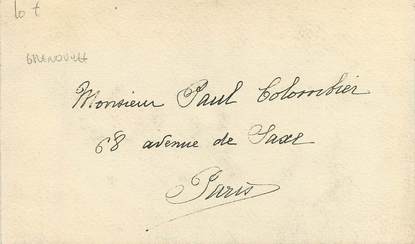 lot
GRENOUILLE
Monsieur Paul Colombier
68 avenue de Saxe
Paris